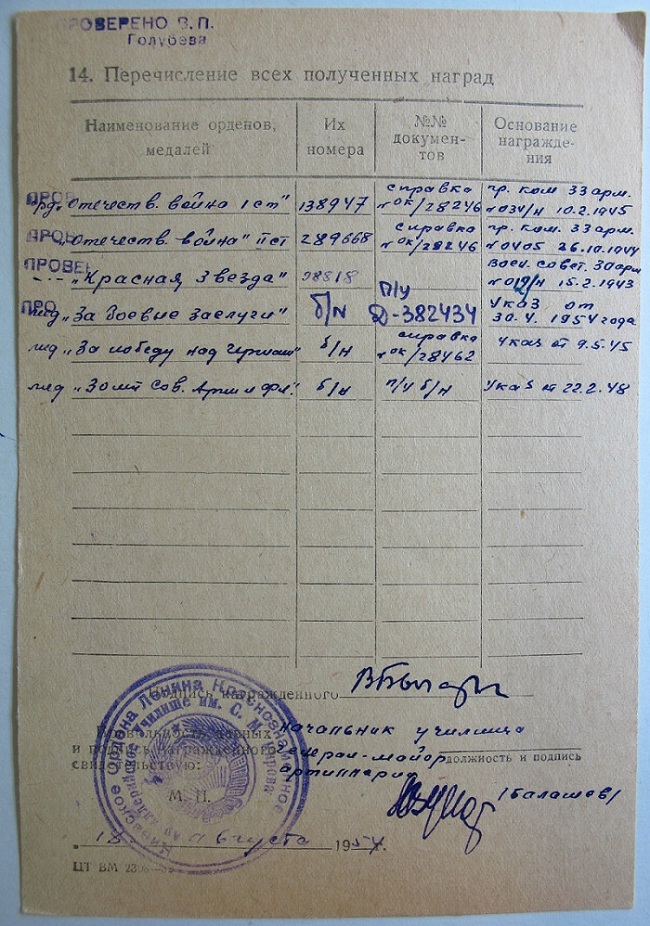 ПРОВЕРЕНО В.П.
Голубева
14. Перечисление всех полученных наград
Наименование орденов, медалей
Их номера
№№ документов
Основание награждения
ПРОВ
орд. „Отечеств. война 1 ст"
138947
справка
№ ОК/28246
пр. ком 33 арм.
№034/н 10.2.1945
ПРОВ
„Отечеств. война" II ст
289668
справка
№ ОК/28246
пр. ком. 33 арм.
№0405 26.10.1944
ПРОВЕ
-"- „Красная Звезда"
98818
Воен. совет. 30 арм
15.2.1943
ПРО
мед „За боевые заслуги"
б/N
П/У
Д-382434
Указ от
30.4.1954 года
мед „За победу над Герман"
б/н
справка
№ ОК/28462
Указ от 9.5.45
мед „30 лет Сов. Арм и фл."
б/н
п/у б/н
Указ от 22.2.48
Подпись награжденного
Правильность данных
и подпись награжденного
свидетельствую:
М. П.
начальник училища
генерал-майор
должность и подпись
артиллерии
(Балашов)
Ордена Ленина Краснознаменное
училище им. С. М. Кирова
августа 1954 г.
ЦТ ВМ